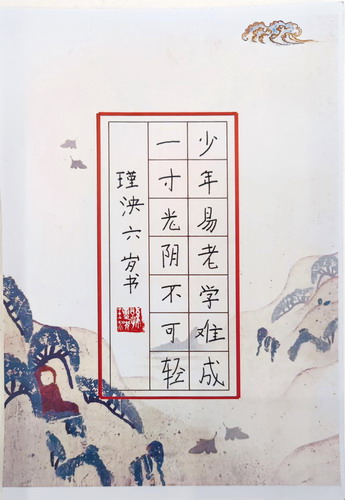 少年易老学难成
一寸光阴不可轻
瑾泱六岁书